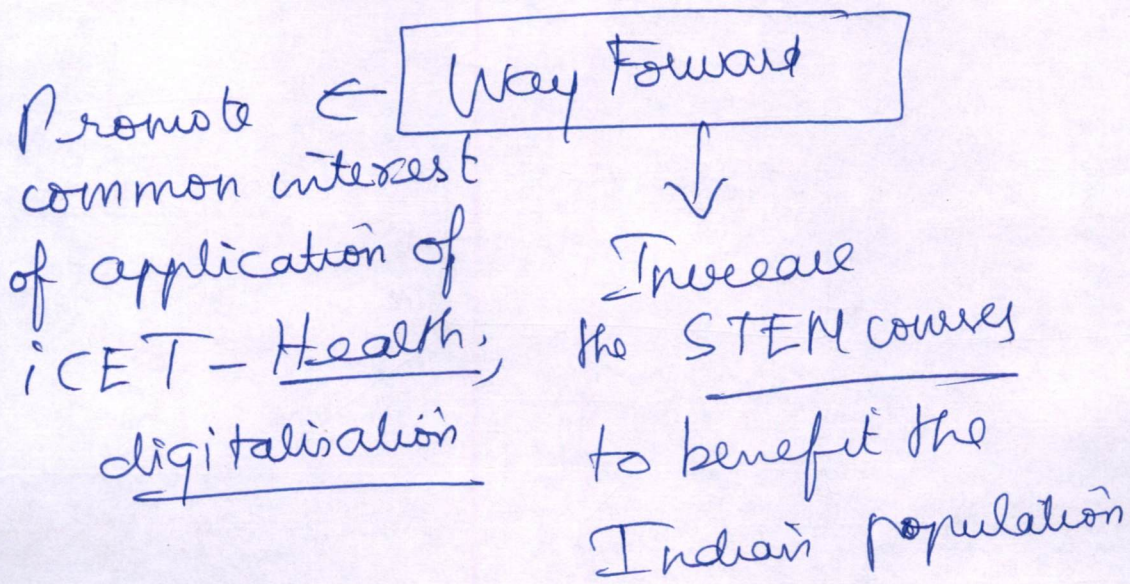 Way Forward
Promote
common interest
of application of
iCET - Health,
digitalisation
Increase
the STEM courses
to benefit the
Indian population